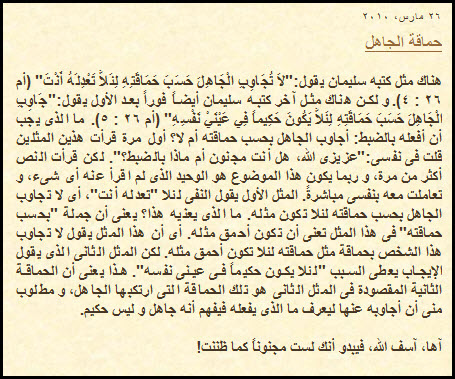 ٢٦ مارس، ٢٠١٠
حماقة الجاهل
هناك مثل كتبه سليمان يقول:"لاَ تُجَاوِبِ الْجَاهِلَ حَسَبَ حَمَاقَتِهِ لِئَلاَّ تَعْدِلَهُ أَنْتَ" (أم
٢٦ : ٤). و لكن هناك مثل آخر كتبه سليمان أيضاً فوراً بعد الأول يقول:"جَاوِبِ
الْجَاهِلَ حَسَبَ حَمَاقَتِهِ لِئَلاَّ يَكُونَ حَكِيماً فِي عَيْنَيْ نَفْسِهِ" (أم ٢٦ : ٥). ما الذى يجب
أن أفعله بالضبط: أجاوب الجاهل بحسب حماقته أم لا؟ أول مرة قرأت هذين المثلين
قلت فى نفسى:"عزيزى الله، هل أنت مجنون أم ماذا بالضبط؟". لكن قرأت النص
أكثر من مرة، و ربما يكون هذا الموضوع هو الوحيد الذى لم اقرأ عنه أى شىء، و
تعاملت معه بنفسى مباشرةً. المثل الأول يقول النفى لئلا "تعدله أنت"، أى لا تجاوب
الجاهل بحسب حماقته لئلا تكون مثله. ما الذى يعنيه هذا؟ يعنى أن جملة "بحسب
حماقته" فى هذا المثل تعنى أن تكون أحمق مثله. أى أن هذا المثل يقول لا تجاوب
هذا الشخص بحماقة مثل حماقته لئلا تكون أحمق مثله. لكن المثل الثانى الذى يقول
الإيجاب يعطى السبب "لئلا يكون حكيماً فى عينى نفسه". هذا يعنى أن الحماقة
الثانية المقصودة فى المثل الثانى هو تلك الحماقة التى ارتكبها الجاهل، و مطلوب
منى أن أجاوبه عنها ليعرف ما الذى يفعله فيفهم أنه جاهل و ليس حكيم.
آها، آسف الله، فيبدو أنك لست مجنوناً كما ظننت!